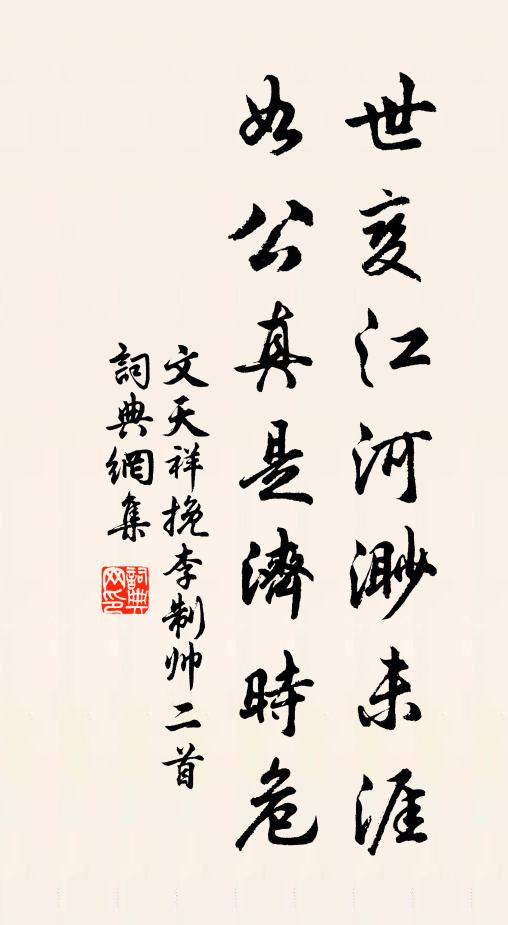 世变江河渺未涯
如公真是濟時危
文天祥挽李制帅二首
詞典網集
詞典網印